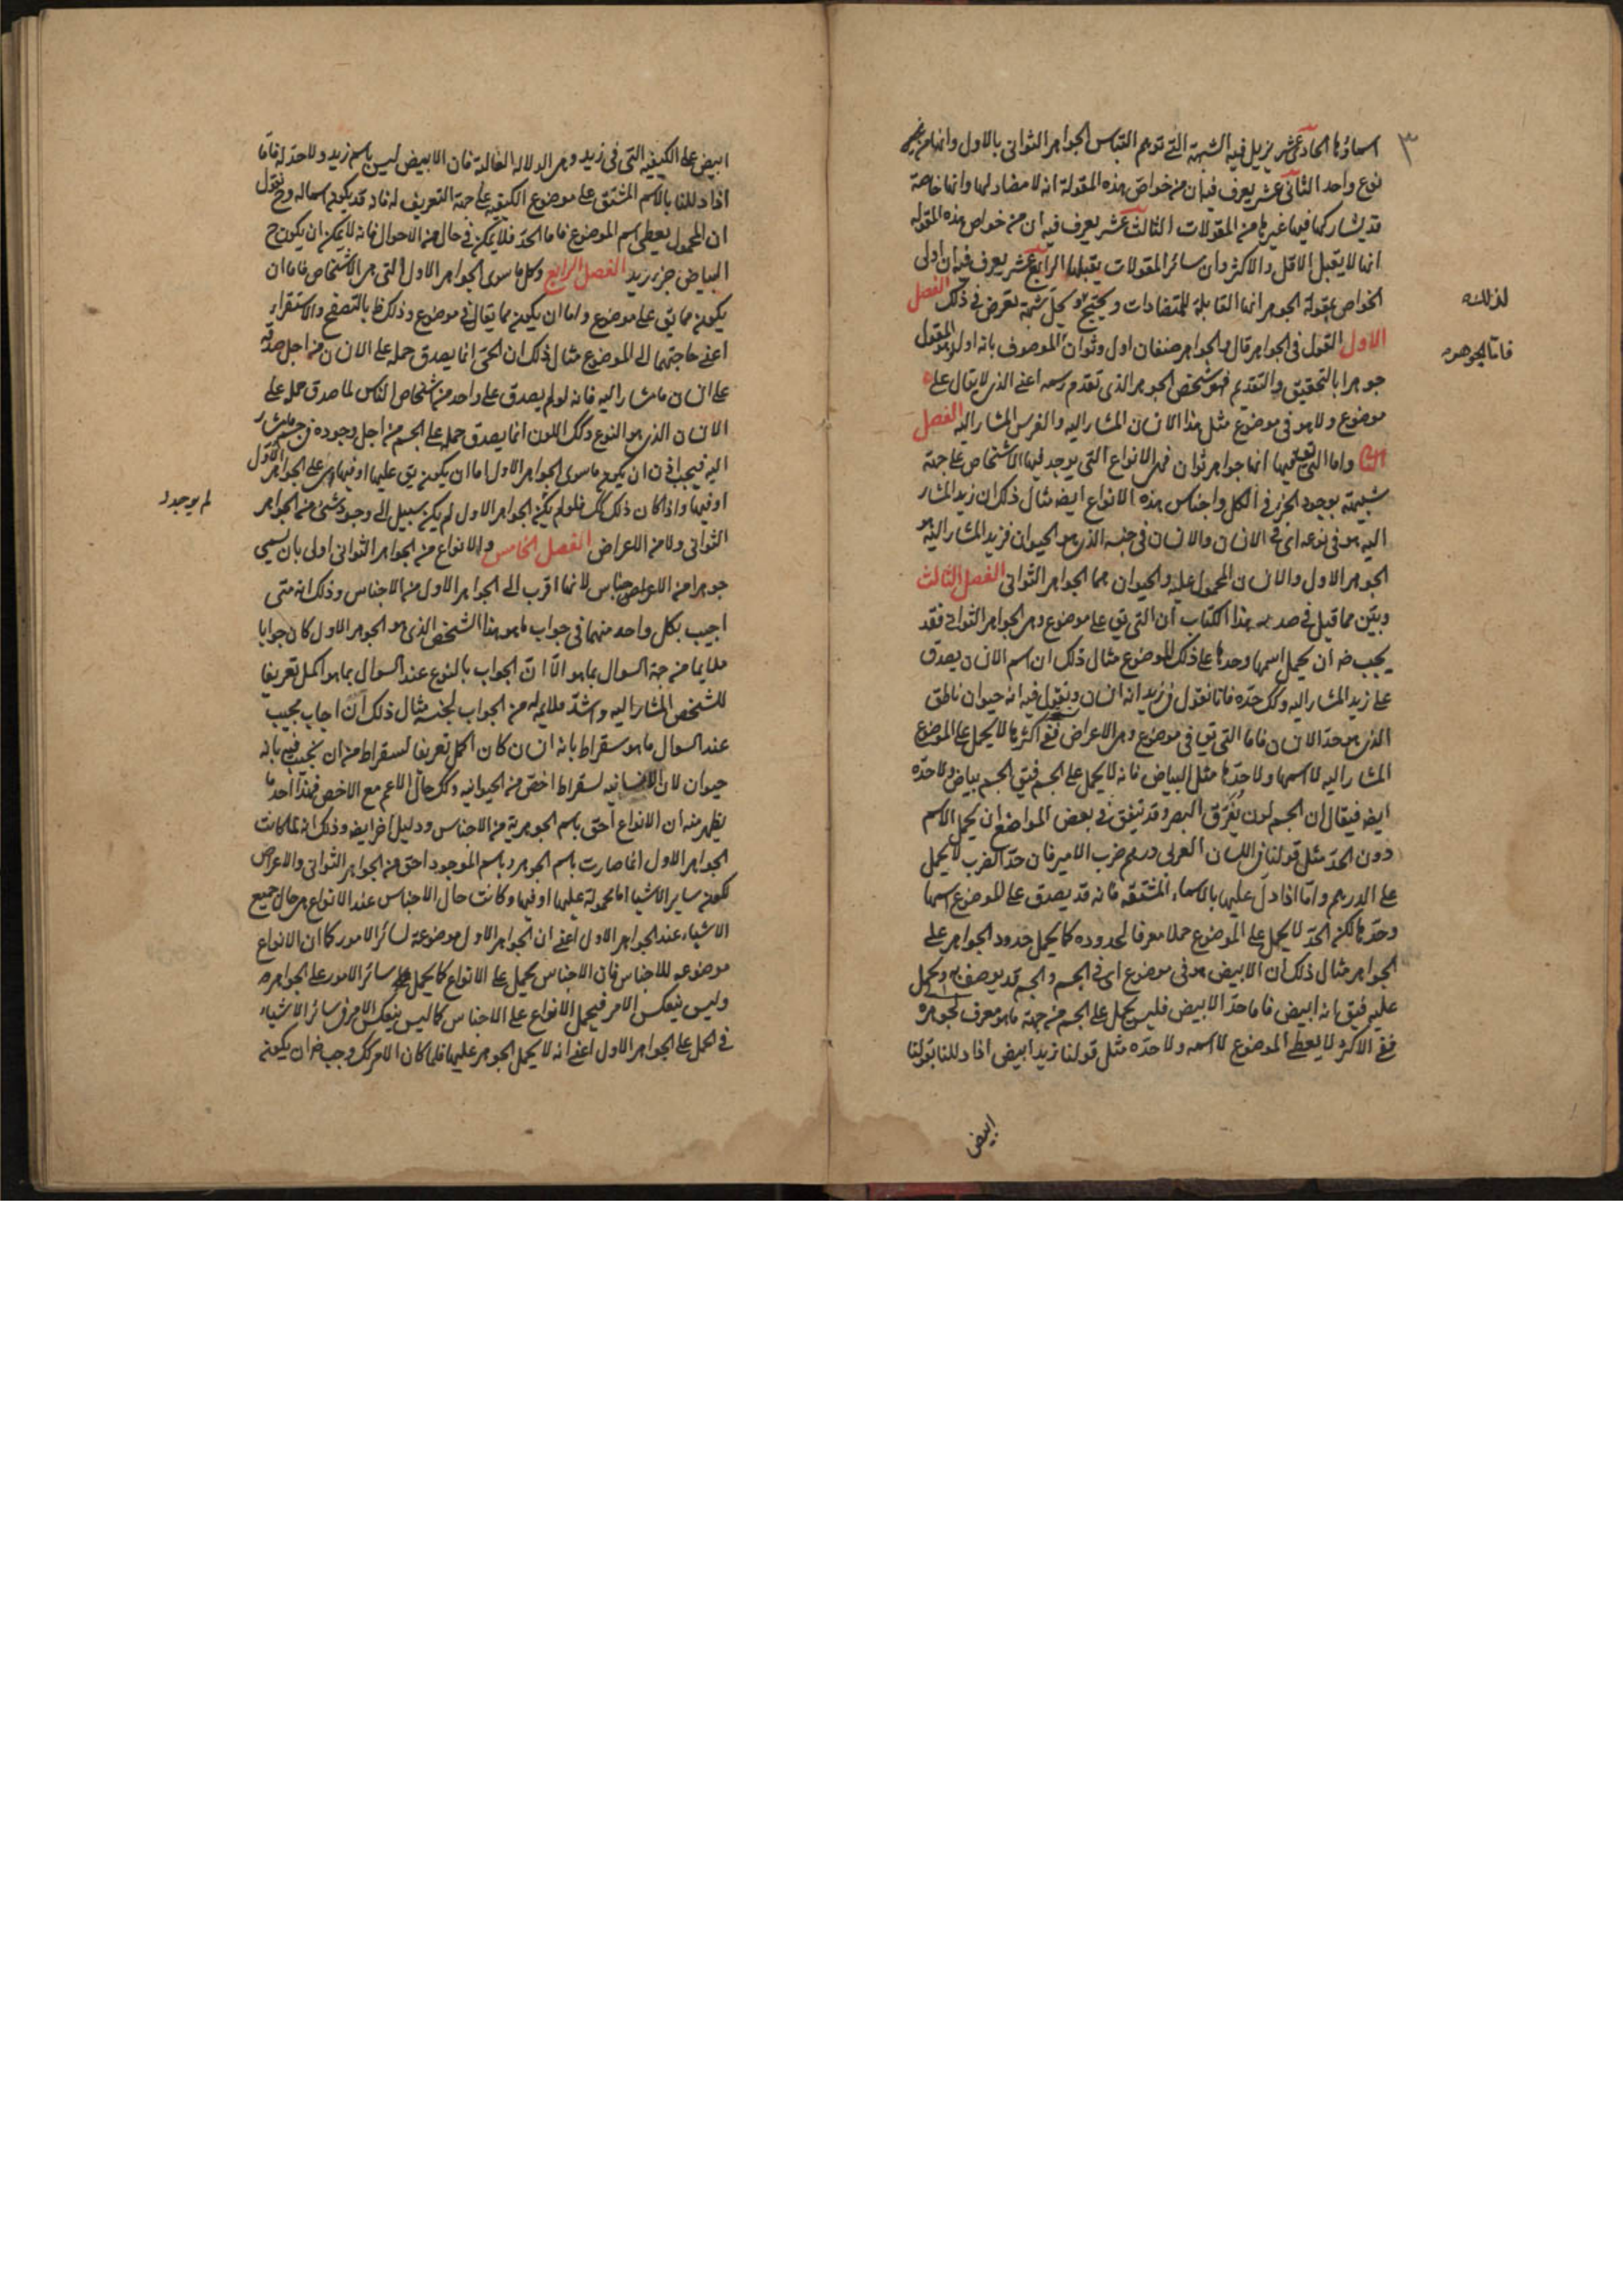 ٣
اسماؤها الحادى عشر يزيل فيه الشبهة التى توهم التباس الجواهر الثوانى بالاول وانها من غير
نوع واحد الثانى عشر يعرف فيه ان من خواص هذه المقولة انه لا مضاد لها وانها خاصة
قد يشاركها فيها غيرها من المقولات الثالث عشر يعرف فيه ان من خواص هذه المقوله
انها لا يقبل الاقل والاكثر وان سائر المقولات يقبلها الرابع عشر يعرف فيه ان اولى
الخواص بمقولة الجوهر انها القابلة للمتضادات ويحتج ويحل شبهة تعرض فى ذلك الفصل
لذلك
الاول القول فى الجواهر قال والجواهر صنفان اول وثوان الموصوف بانه اول وهو المقول
فاما الجوهر
جوهرا بالتحقيق والتقديم فهو شخص الجوهر الذى تقدم رسمه اعنى الذى لا يقال على
موضوع ولا هو فى موضوع مثل هذا الانسان المشار اليه والفرس المشار اليه الفصل
واما التى فيها انها جواهر ثوان فهى الانواع التى يوجد فيها الاشخاص على جهة
شبيهة بوجود الجزء فى الكل واجناس هذه الانواع ايضه مثال ذلك ان زيد المشار
اليه هو فى نوعه اى فى الانسان والانسان فى جنسه الذى هو الحيوان فزيد المشار اليه هو
الجوهر الاول والانسان المحمول عليه والحيوان هما الجواهر الثوانى الفصل الثالث
وبين مما قيل فى صدر هذا الكتاب ان التى يق على موضوع وهى الجواهر الثوانى فقد
يجب ضه ان يحمل اسمها وحدها على ذلك الموضوع مثال ذلك ان اسم الانسان يصدق
على زيد المشار اليه وكك حده فانا نقول فى زيد انه انسان ونقول فيه انه حيوان ناطق
الذى هو حد الانسان فاما التى يق فى موضوع وهى الاعراض ففى اكثرها لا يحمل على الموضوع
المشار اليه لا اسمها ولا حدها مثل البياض فانه لا يحمل على الجسم فيق الجسم بياض ولا حده
ايضه فيقال ان الجسم لون يفرق البصر وقد تيفق فى بعض المواضع ان يحمل الاسم
دون الحد مثل قولنا فى اللسان العربى درهم ضرب الامير فان حد الضرب لا يحمل
على الدرهم واما اذا دل عليها بالاسماء المشتقه فانه قد يصدق على الموضوع اسمها
وحدها لكن الحد لا يحمل على الموضوع حملا معرفا لحدوده كما يحمل حدود الجواهر على
الجواهر مثال ذلك ان الابيض هو فى موضوع اى فى الجسم والجسم قد يوصف به ويحمل
عليه فيق انه ابيض فاما حد الابيض فليس يحمل على الجسم من جهة ما هو معرف لجوهره
ففى الاكثر لا يعطى الموضوع لا اسمه ولا حده مثل قولنا زيد ابيض اذا دللنا بقولنا
ابيض
ابيض على الكيفيه التى فى زيد وهى الدلاله الغالبة فان الابيض ليس باسم زيد ولا حد له فاما
اذا دللنا بالاسم المشتق على موضوع الكيفيه على جهة التعريف له فانه قد يكون اسما له وح نقول
ان المحمول يعطى اسم الموضوع فاما الحد فلا يمكن فى حال من الاحوال فانه لا يمكن ان يكون ح
البياض جزء زيد الفصل الرابع وكل ما سوى الجواهر الاول التى هى الاشخاص فاما ان
يكون مما يق على موضوع واما ان يكون مما يقال فى موضوع وذلك ظ بالتصفح والاستقراء
اعنى حاجتهما الى الموضوع مثال ذلك ان الحى انما يصدق حمله على الانسان من اجل صدقه
على انسان ما مشار اليه فانه لو لم يصدق على واحد من اشخاص الناس لما صدق حمله على
الانسان الذى هو النوع وكك اللون انما يصدق حمله على الجسم من اجل وجوده فى جسم ما مشار
اليه فيجب اذن ان يكون ما سوى الجواهر الاول اما ان يكون يق عليها او فيها اى على الجواهر الاول
او فيها واذا كان ذلك كك فلو لم يكن الجواهر الاول لم يكن سبيل الى وجود شئ من الجواهر
لم يوجد
الثوانى ولا من الاعراض الفصل الخامس والانواع من الجواهر الثوانى اولى بان تسمى
جوهرا من الاجناس لانها اقرب الى الجواهر الاول من الاجناس وذلك انه متى
اجيب بكل واحد منهما فى جواب ما هو هذا الشخص الذى هو الجوهر الاول كان جوابا
ملايما من جهة السوال بما هو الا ان الجواب بالنوع عند السوال بما هو اكمل تعريفا
للشخص المشار اليه واشد ملايمه له من الجواب لجنسه مثال ذلك ان اجاب مجيب
عند السوال ما هو سقراط بانه انسان كان اكمل تعريفا لسقراط من ان يجيب فيه بانه
حيوان لان الانسانيه لسقراط اخص من الحيوانيه وكك حال الاعم مع الاخص فهذا احد ما
يظهر منه ان الانواع احق باسم الجوهرية من الاجناس ودليل اخر ايضه وذلك انه لما كانت
الجواهر الاول انما صارت باسم الجوهر وباسم الموجود احق من الجواهر الثوانى والاعراض
لكون ساير الاشيا اما محمولة عليها او فيها وكانت حال الاجناس عند الانواع هى حال جميع
الاشياء عند الجواهر الاول اعنى ان الجواهر الاول موضوعة لسائر الامور كما ان الانواع
موضوعه للاجناس فان الاجناس يحمل على الانواع كما يحمل سائر الامور على الجواهر
وليس ينعكس الامر فيحمل الانواع على الاجناس كما ليس ينعكس الامر فى سائر الاشياء
فى الحمل على الجواهر الاول اعنى انه لا يحمل الجوهر عليها فلما كان الامر كك وجب ضه ان يكون